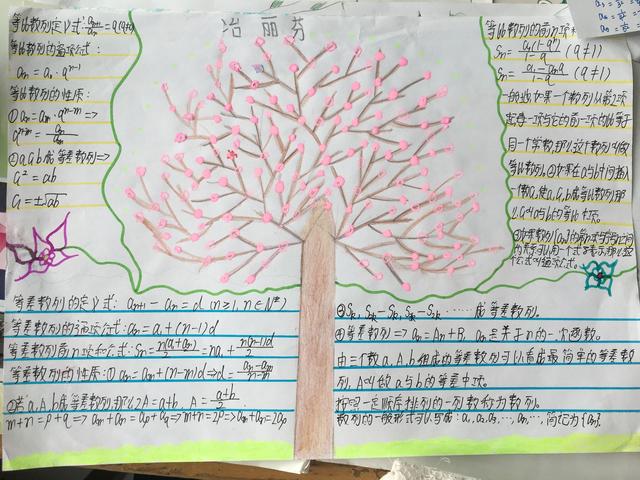 冶丽芬
等比数列定义式: aₙ₊₁/aₙ=q(q≠0)
等比数列的通项公式:
aₙ=a₁·qⁿ⁻¹
等比数列的性质:
①aₙ=aₘ·qⁿ⁻ᵐ=>
qⁿ⁻ᵐ=aₙ/aₘ
②a,G,b成等差数列=>
G²=ab
G=±√ab
等比数列的前n项和
Sₙ=a₁(1-qⁿ)/1-q (q≠1)
Sₙ=a₁-aₙq/1-q (q≠1)
一般地,如果一个数列从第2项
起每一项与它的前一项的比等于
同一个常数,那么这个数列叫做
等比数列。②如果在a与b中间插入
一个数G,使a,G,b成等比数列,那
么G叫a与b的等比中项。
公式叫通项公式。
等差数列的定义式: aₙ₊₁-aₙ=d (n≥1,n∈N*)
等差数列的通项公式:aₙ=a₁+(n-1)d
等差数列前n项和公式:Sₙ=n(a₁+aₙ)/2=na₁+n(n-1)d/2
等差数列的性质:①aₙ=aₘ+(n-m)d=>d=aₙ-aₘ/n-m
②若a,A,b成等差数列,那么2A=a+b, A=a+b/2
m+n=p+q=>aₘ+aₙ=aₚ+a_q=>m+n=2p=>aₘ+aₙ=2aₚ
③Sₖ,S₂ₖ-Sₖ,S₃ₖ-S₂ₖ……成等差数列。
④等差数列=>aₙ=An+B, aₙ是关于n的一次函数。
由三个数a,A,b组成的等差数列可以看成最简单的等差数
列,A叫做a与b的等差中项。
按照一定顺序排列的一列数称为数列。
数列的一般形式可以写成:a₁,a₂,a₃,…,aₙ,…,简记为{aₙ}.